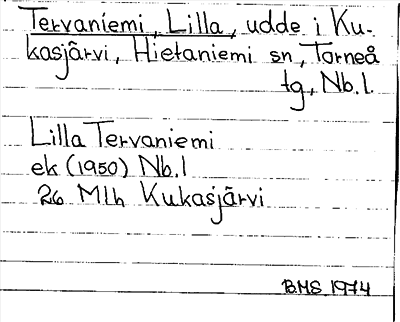 Tervaniemi, Lilla, udde i Ku-
kasjärvi, Hietaniemi sn, Torneå
tg, Nb. l.
Lilla Tervaniemi
ek (1950) Nb. l
26 Mlh Kukasjärvi
BMS 1974